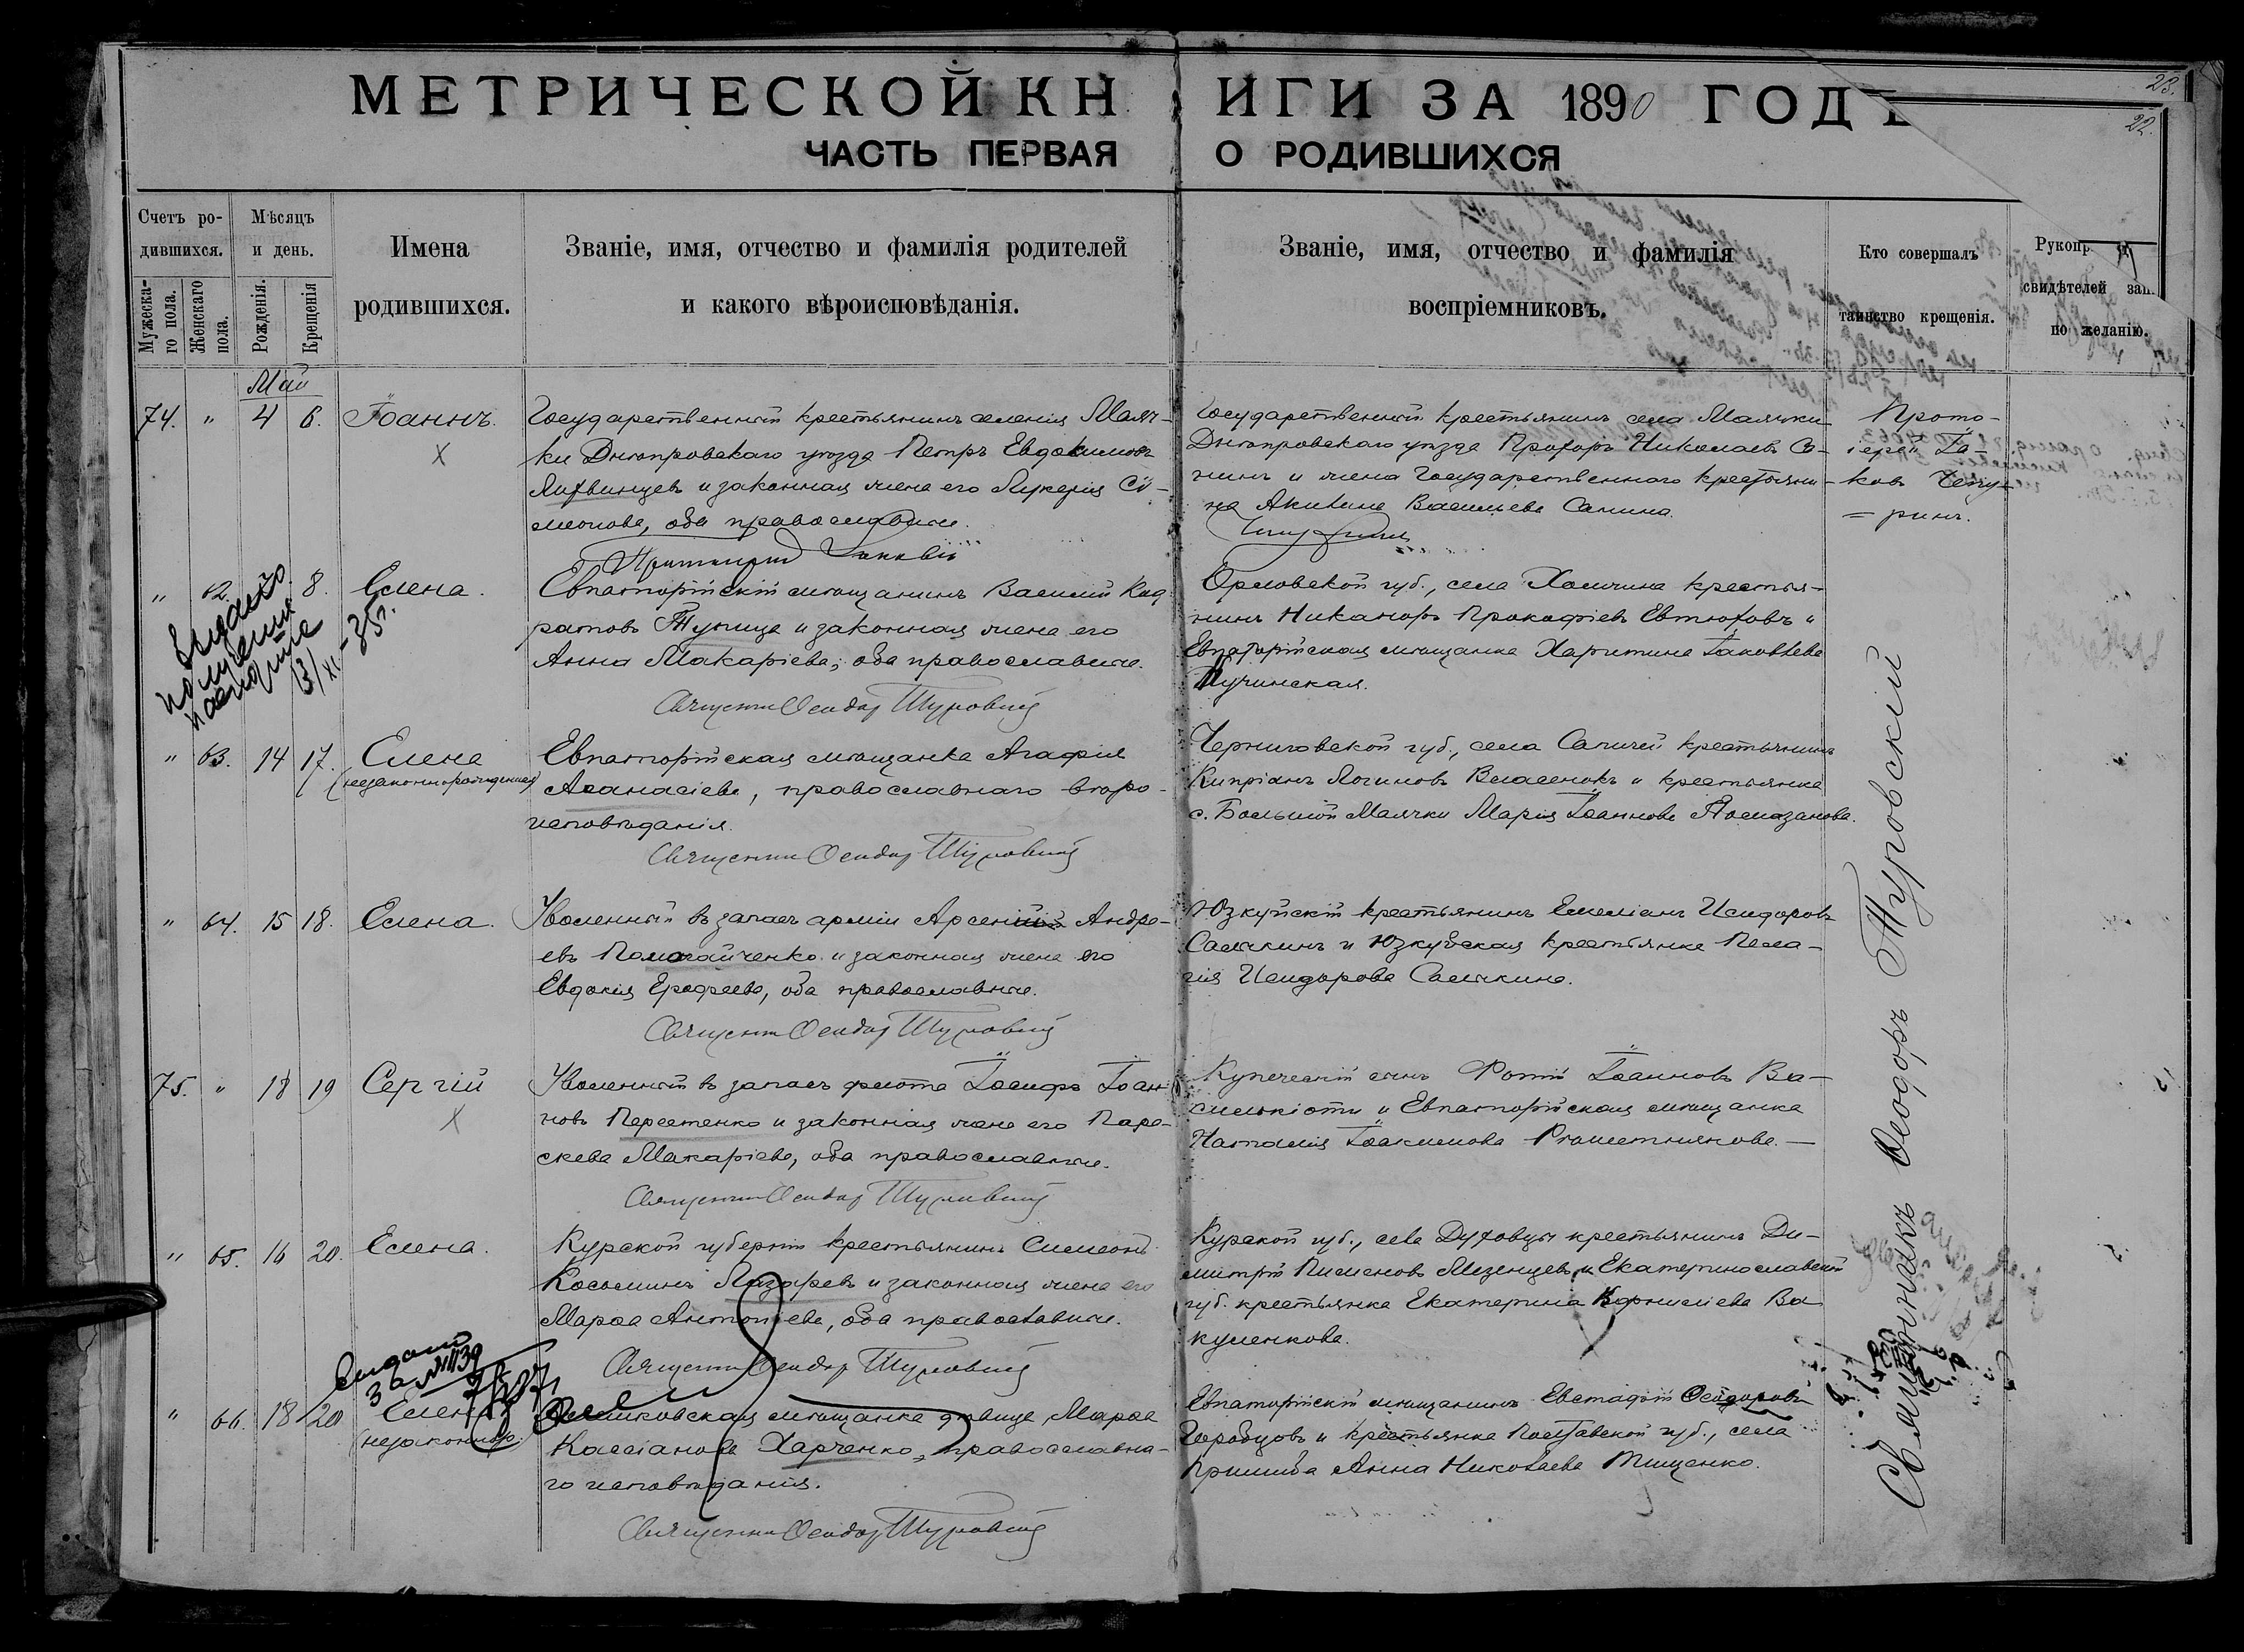 МЕТРИЧЕСКОЙ КНИГИ ЗА 1890 ГОДЪ
23.
22.
ЧАСТЬ ПЕРВАЯ О РОДИВШИХСЯ
Счетъ ро-
дившихся.
Мужеска-
го пола.
Женскаго
пола.
Мѣсяцъ
и день.
Рожденія.
Крещенія
Имена
родившихся.
Званіе, имя, отчество и фамилія родителей
и какого вѣроисповѣданія.
Званіе, имя, отчество и фамилія
воспріемниковъ.
Кто совершалъ
таинство крещенія.
Рукопр
свидѣтелей зап
по желанію.
Май
74. " 4 6. Іоаннъ.
Государственный крестьянинъ селенія Маяч-
ки Днепровскаго уѣзда Петръ Евдокимовъ
Литвинцевъ и законная жена его Лукерія Сѵ-
меонова, оба православные.
Государственный крестьянинъ села Маячки
Днепровскаго уѣзда Прохоръ Николаевъ Са-
нинъ и жена Государственнаго крестьяни-
на Акилина Васильева Санина.
Прото-
іерей Іа-
ковъ Чепу-
=ринъ.
" 62. 8. Елена.
Евпаторійскій мѣщанинъ Василій Код
ратовъ Тупица и законная жена его
Анна Макаріева, оба православные.
Священникъ Ѳеодоръ Туровскій
Орловской губ., села Халчина крестья-
нинъ Никаноръ Прокофіевъ Евтюховъ и
Евпаторійская мѣщанка Харитина Іаковлева
Пучинская.
выдано
получении
паспорта
13/XI-35г.
" 63. 14 17. Елена
(незаконнорожденная)
Евпаторійская мѣщанка Агафія
Аѳанасіева, православнаго вѣро-
исповѣданія.
Священникъ Ѳеодоръ Туровскій
Черниговской губ., села Сапичей крестьянинъ
Кипріанъ Логиновъ Власенокъ и крестьянка
с. Большой Маячки Марія Іоаннова Алмазанова.
" 64. 15 18. Елена.
Уволенный въ запасъ арміи Арсеній Андре-
евъ Помогайченко и законная жена его
Евдокія Ерофеева, оба православные.
Священникъ Ѳеодоръ Туровскій
Юзкуйскій крестьянинъ Емеліанъ Исидоровъ
Сальникинъ и Юзкуйская крестьянка Пела-
гія Исидорова
75. " 18 19 Сергій
Уволенный въ запасъ флота Іосифъ Іоан-
новъ Перетенко и законная жена его Пара-
скева Макаріева, оба православные.
Священникъ Ѳеодоръ Туровскій
Купеческій сынъ Фотій Іоанновъ Ва-
силькіоти и Евпаторійская мѣщанка
Наталія Іоакимова
" 65. 16 20. Елена.
Курской губерніи крестьянинъ Симеонъ
Косьминъ Лазаревъ и законная жена его
Марѳа Антоніева, оба православные.
Священникъ Ѳеодоръ Туровскій
Курской губ., села Духовцы крестьянинъ Ди-
митрій Пименовъ Мезенцевъ и Екатеринославской
губ. крестьянка Екатерина Корниліева Ва
куленкова.
Выдана
за №1139
" 66. 18 20 Елена
(незаконнор.)
Алешковская мѣщанка дѣвица Марѳа
Кассіанова Харченко, православна-
го исповѣданія.
Священникъ Ѳеодоръ Туровскій
Евпаторійскій мѣщанинъ Евстафій Ѳеодоровъ
Горобцовъ и крестьянка Полтавской губ., села
Пришиба Анна Николаева Тищенко.
Священникъ Ѳеодоръ Туровскій